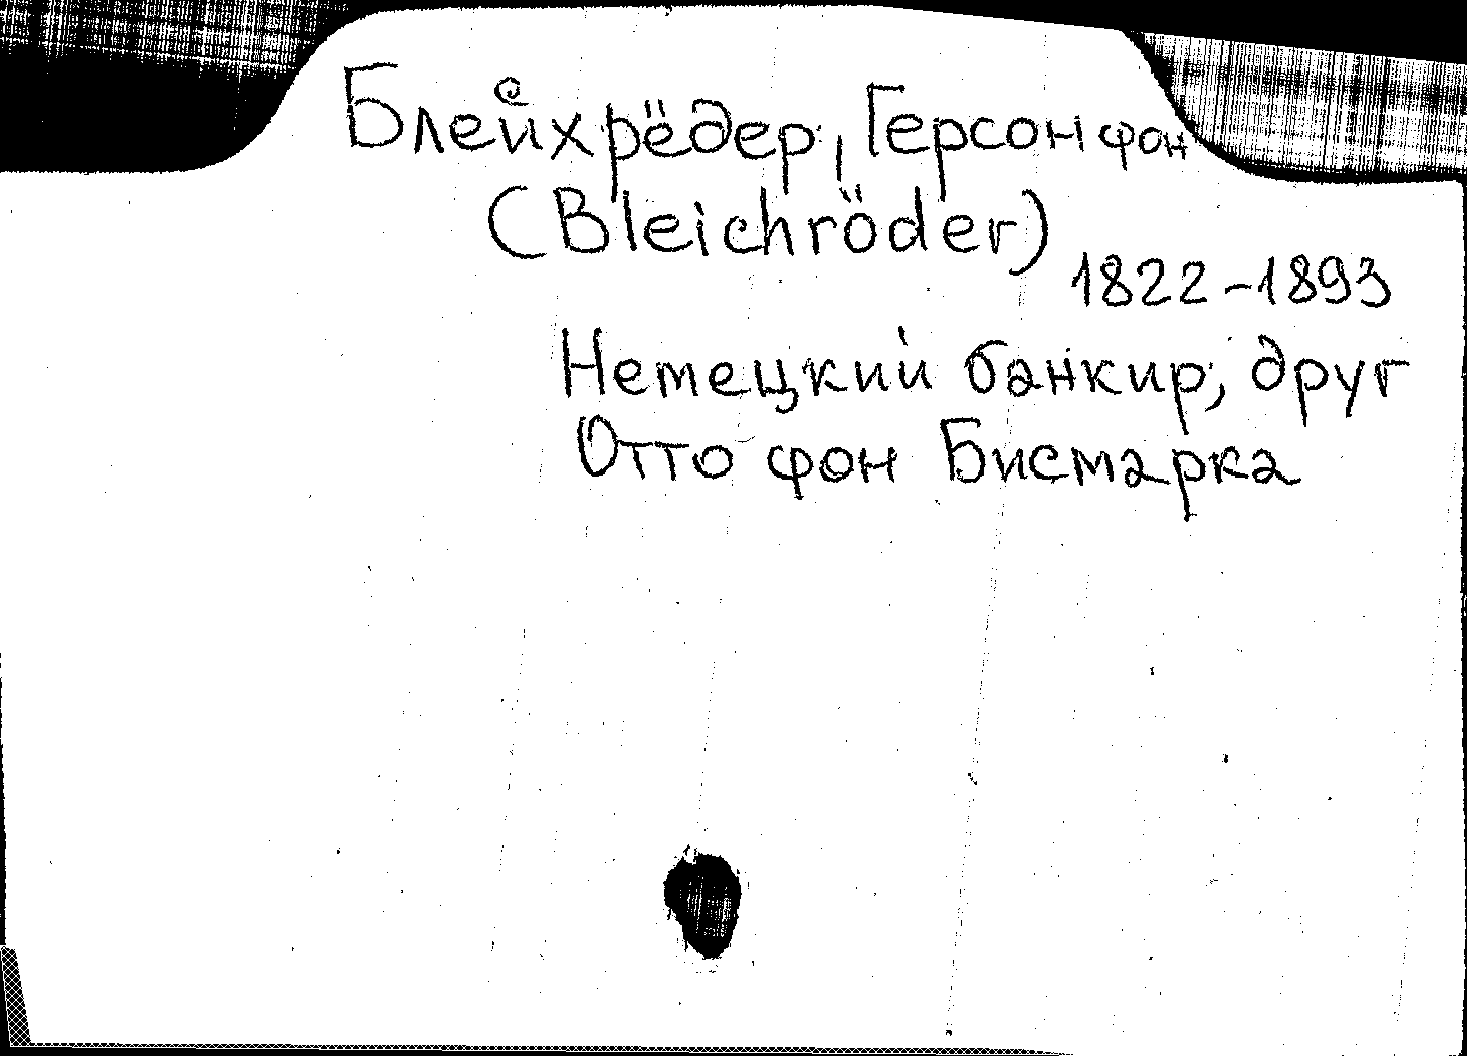 Блейхрёдер, Герсон фон
(Bleichröder)
1822-1893
Немецкий банкир, друг
Отто фон Бисмарка